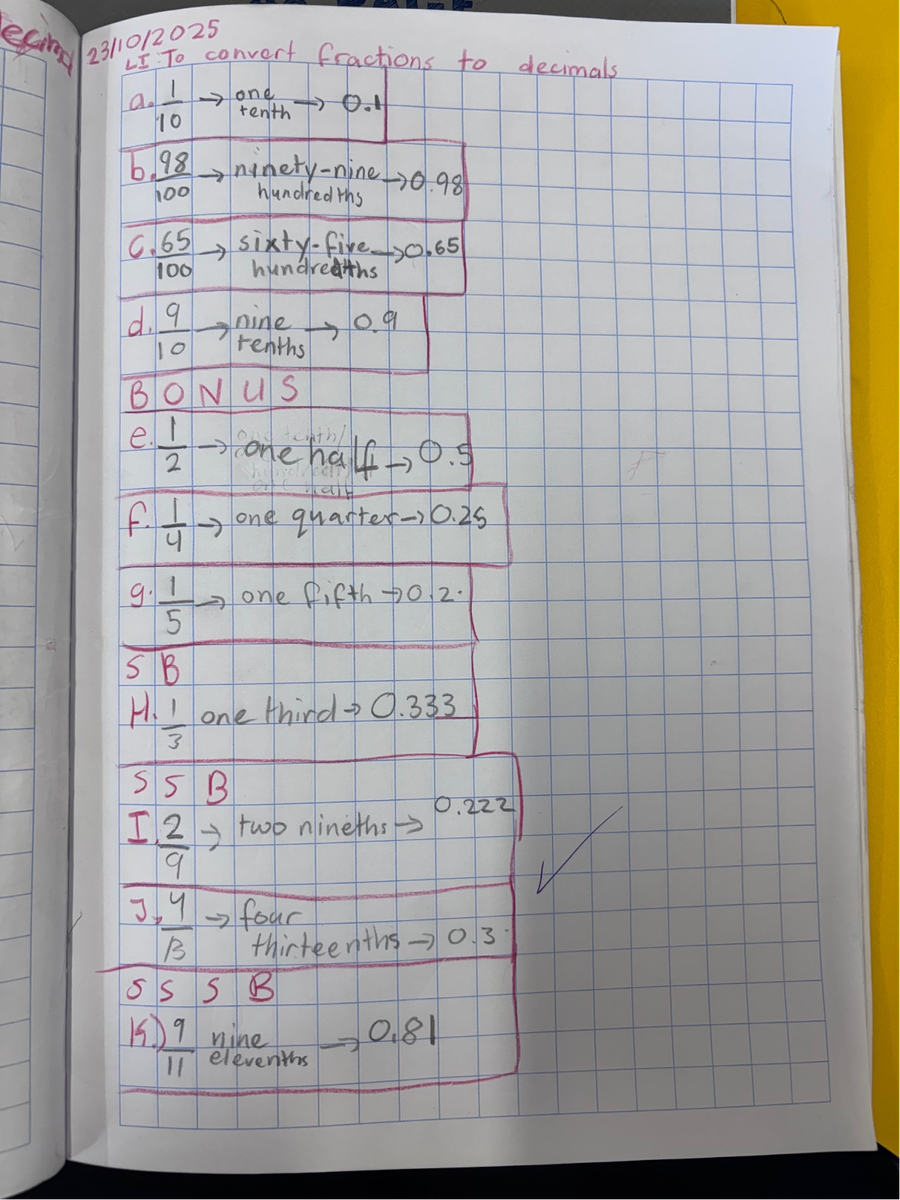 23/10/2025
LI: To convert fractions to decimals
a. 1/10 → one tenth → 0.1
b. 98/100 → ninety-nine hundredths → 0.98
c. 65/100 → sixty-five hundredths → 0.65
d. 9/10 → nine tenths → 0.9
BONUS
e. 1/2 → one half → 0.5
f. 1/4 → one quarter → 0.25
g. 1/5 → one fifth → 0.2
S B
H. 1/3 one third → 0.333
S S B
I. 2/9 → two nineths → 0.222
J. 4/13 → four thirteenths → 0.3
S S S B
K.) 9/11 nine elevenths → 0.81